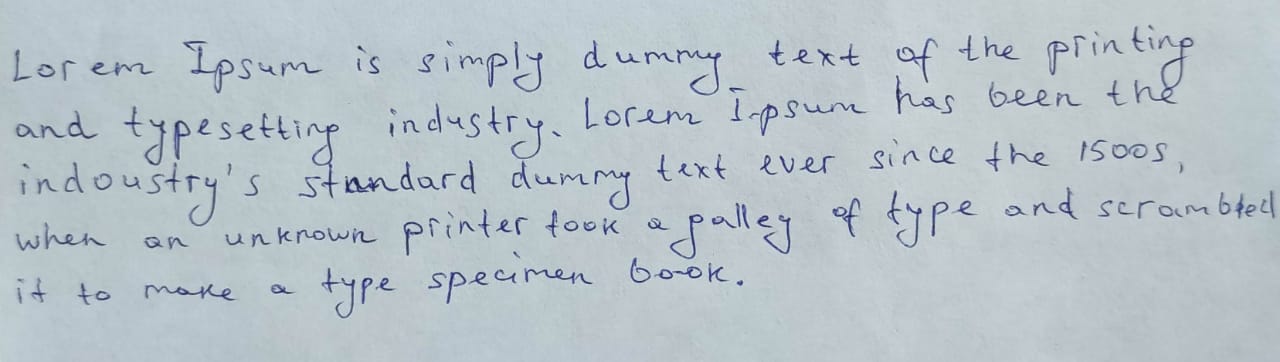 Lorem Ipsum is simply dummy text of the printing
and typesetting industry. Lorem Ipsum has been the
indoustry's standard dummy text ever since the 1500s,
when an unknown printer took a palley of type and scrambled
it to make a type specimen book.